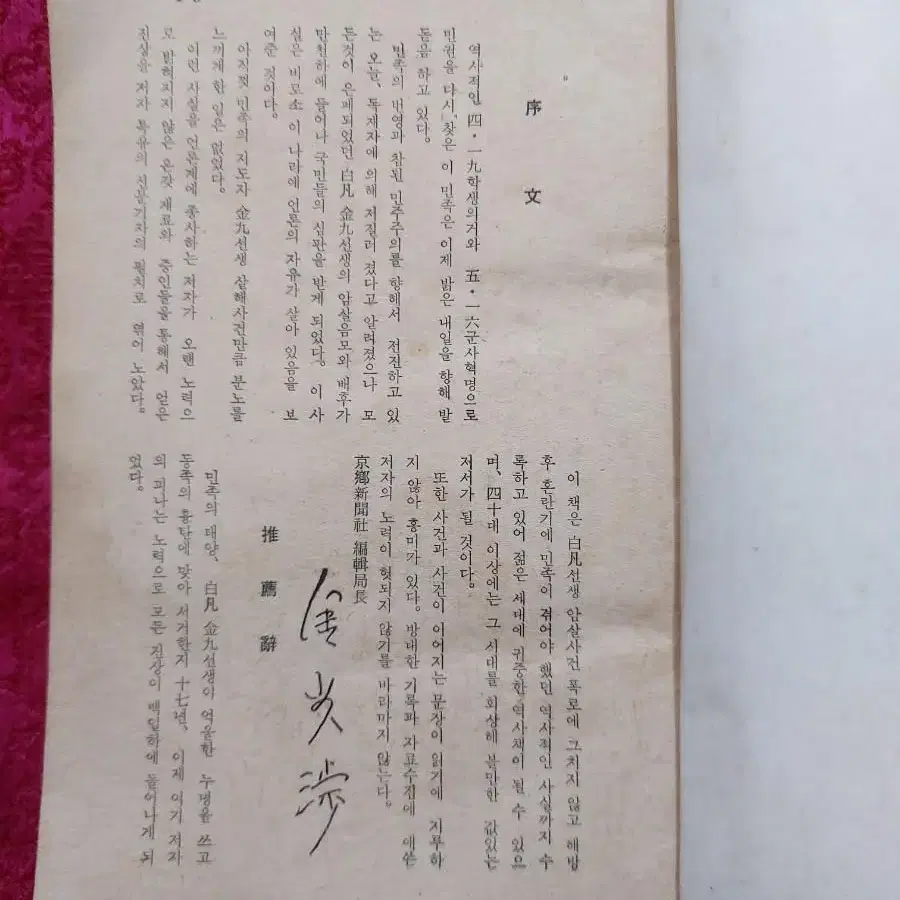 序文
역사적인 四·一九학생의거와 五·一六군사혁명으로
민권을 다시 찾은 이 민족은 이제 밝은 내일을 향해 발
돋음 하고 있다.
민족의 번영과 참된 민주주의를 향해서 전진하고 있
는 오늘, 독재자에 의해 저질러 졌다고 알려졌으나 모
든것이 은폐되었던 白凡 金九선생의 암살음모와 배후가
만천하에 들어나 국민들의 심판을 받게 되었다。 이 사
실은 비로소 이 나라에 언론의 자유가 살아 있음을 보
여준 것이다。
아직껏 민족의 지도자 金九선생 살해사건만큼 분노를
느끼게 한 일은 없었다。
이런 사실을 언론계에 종사하는 저자가 오랜 노력으
로 밝혀지지 않은 온갖 재료와 증인들을 통해서 얻은
진상을 저자 특유의 신문기자의 필치로 엮어 노았다。
이 책은 白凡선생 암살사건 폭로에 그치지 않고 해방
후 혼란기에 민족이 겪어야 했던 역사적인 사실까지 수
록하고 있어 젊은 세대에 귀중한 역사책이 될 수 있으
며、 四十대 이상에는 그 시대를 회상해 볼만한 값있는
저서가 될 것이다。
또한 사건과 사건이 이어지는 문장이 읽기에 지루하
지 않아 흥미가 있다。 방대한 기록과 자료수집에 애쓴
저자의 노력이 헛되지 않기를 바라마지 않는다。
京鄕新聞社 編輯局長
推薦辭
민족의 태양、 白凡 金九선생이 억울한 누명을 쓰고
동족의 흉탄에 맞아 서거한지 十七년、 이제 여기 저자
의 피나는 노력으로 모든 진상이 백일하에 들어나게 되
었다。